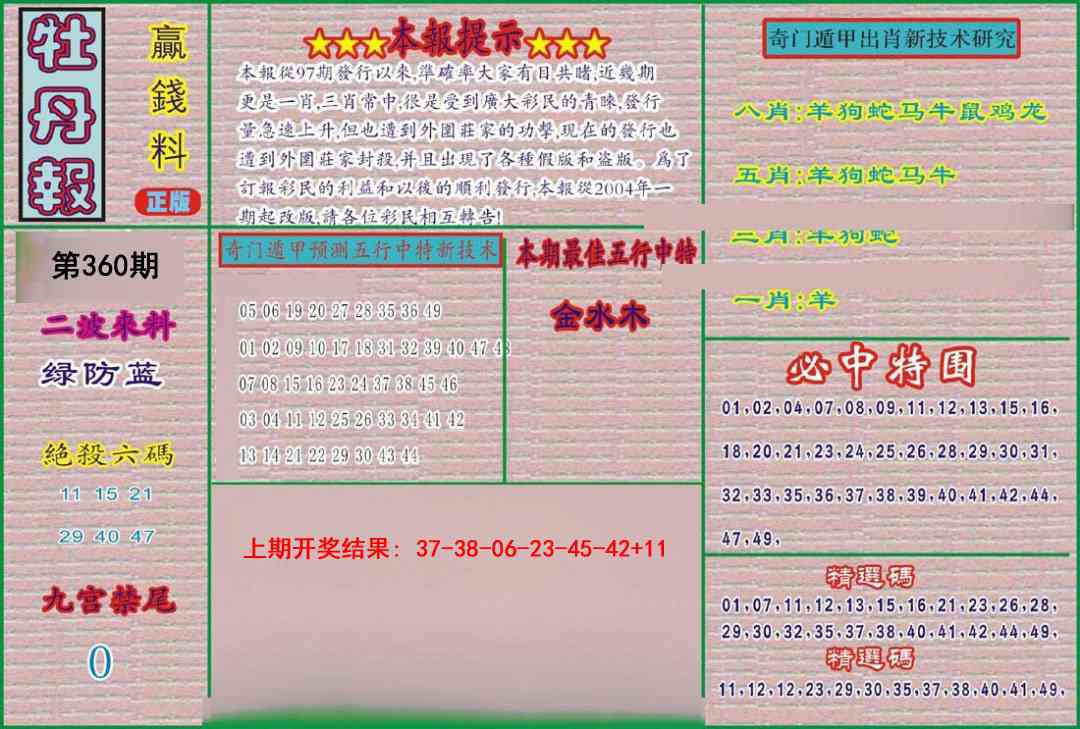 牡丹報
贏錢料
正版
★★★本報提示★★★
本報從97期發行以來,準確率大家有目共睹,近幾期
更是一肖,三肖常中,很是受到廣大彩民的青睞,發行
量急速上升,但也遭到外圍莊家的功擊,現在的發行也
遭到外圍莊家封殺,并且出現了各種假版和盗版。爲了
訂報彩民的利益和以後的順利發行,本報從2004年一
期起改版,請各位彩民相互轉告!
奇门遁甲出肖新技术研究
八肖:羊狗蛇马牛鼠鸡龙
五肖:羊狗蛇马牛
三肖:羊狗蛇
一肖:羊
第360期
二波來料
绿防蓝
絕殺六碼
11 15 21
29 40 47
九宫禁尾
0
奇门遁甲预测五行中特新技术
05 06 19 20 27 28 35 36 49
01 02 09 10 17 18 31 32 39 40 47 48
07 08 15 16 23 24 37 38 45 46
03 04 11 12 25 26 33 34 41 42
13 14 21 22 29 30 43 44
本期最佳五行中特
金水木
上期开奖结果: 37-38-06-23-45-42+11
必中特围
01,02,04,07,08,09,11,12,13,15,16,
18,20,21,23,24,25,26,28,29,30,31,
32,33,35,36,37,38,39,40,41,42,44,
47,49,
精選碼
01,07,11,12,13,15,16,21,23,26,28,
29,30,32,35,37,38,40,41,42,44,49,
精選碼
11,12,12,23,29,30,35,37,38,40,41,49,